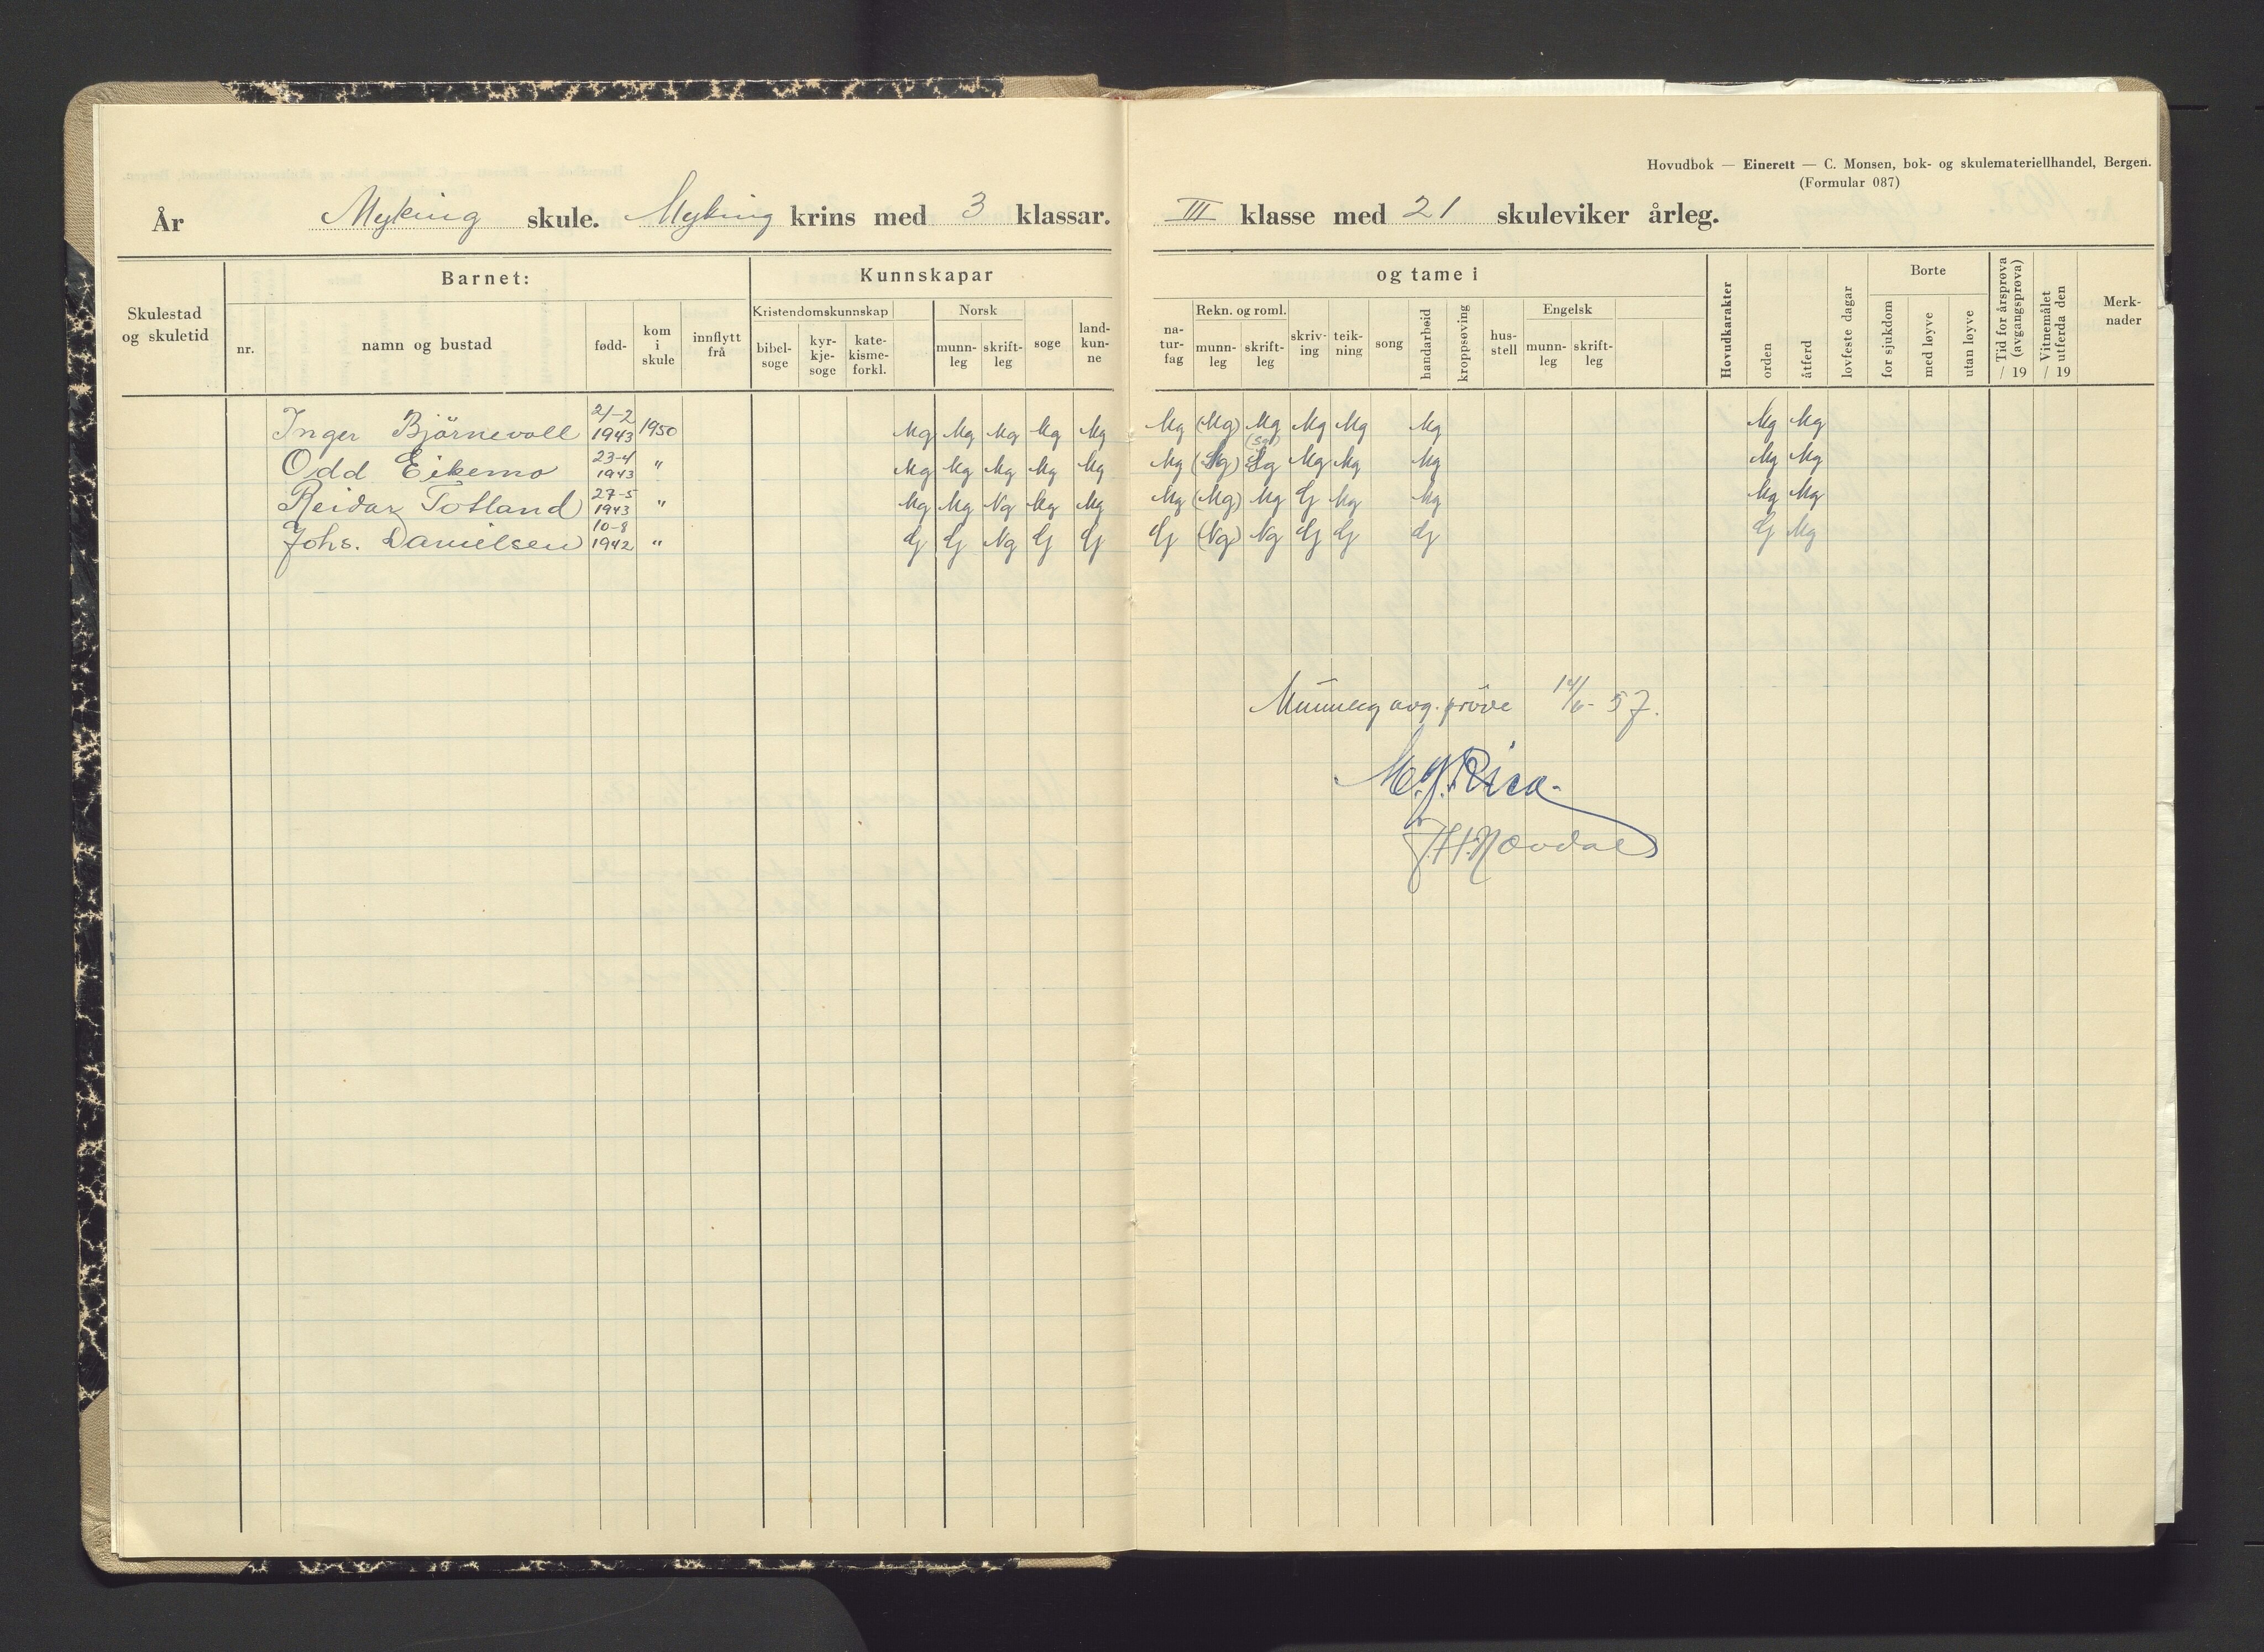 Hovudbok — Einerett — C. Monsen, bok- og skulemateriellhandel, Bergen.
(Formular 087)
År Myking skule. Myking krins med 3 klassar. III klasse med 21 skuleviker årleg.
Skulestad og skuletid
Barnet:
nr. namn og bustad fødd- kom i skule innflytt frå
Kunnskapar og tame i
Kristendomskunnskap
bibel-soge kyr-kje-soge kate-kisme-forkl.
Norsk
munn-leg skrift-leg soge land-kun-ne
na-tur-fag
Rekn. og roml.
munn-leg skrift-leg skriv-ing teik-ning song handarbeid kroppsøving hus-stell
Engelsk
munn-leg skrift-leg
Hovudkarakter orden åtferd lovfeste dagar
Borte
for sjukdom med løyve utan løyve
Tid for årsprøva (avgangsprøva) / 19
Vitnemålet utferda den / 19
Merk-nader
Inger Björnevoll 21-2 1943 1950 Mg Mg Mg Mg Mg Mg (Mg) Mg Mg Mg Mg Mg Mg
Odd Eikemo 23-4 1943 " Mg Mg Mg Mg Mg Mg (Sg) (Sg) Sg Mg Mg Mg Mg Mg
Reidar Totland 27-5 1943 " Mg Mg Ng Mg Mg Mg (Mg) Mg G Mg Mg Mg Mg
Johs. Danielsen 10-8 1942 " G G Ng G G G (Ng) Ng G G G G Mg
Munnleg avg. pröve 14/6- 57.